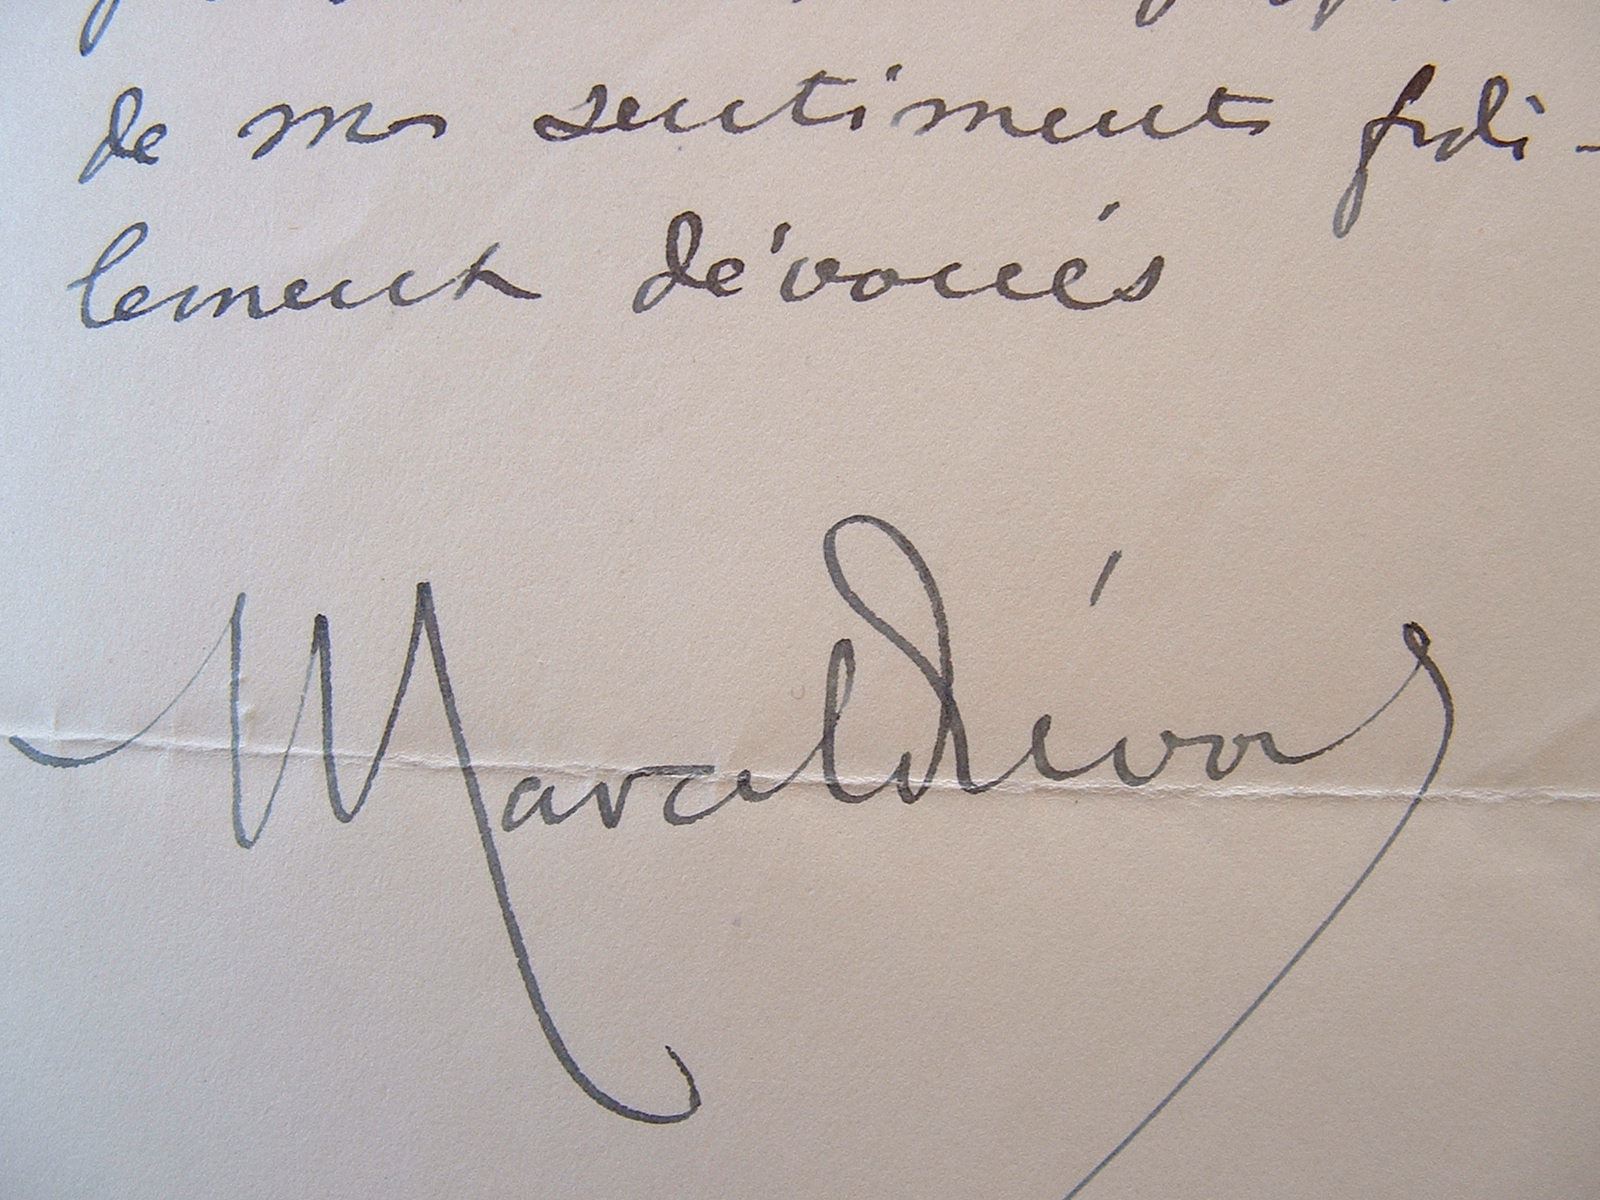 de mes sentiments fidè-
lement dévoués
Marcel Prévost